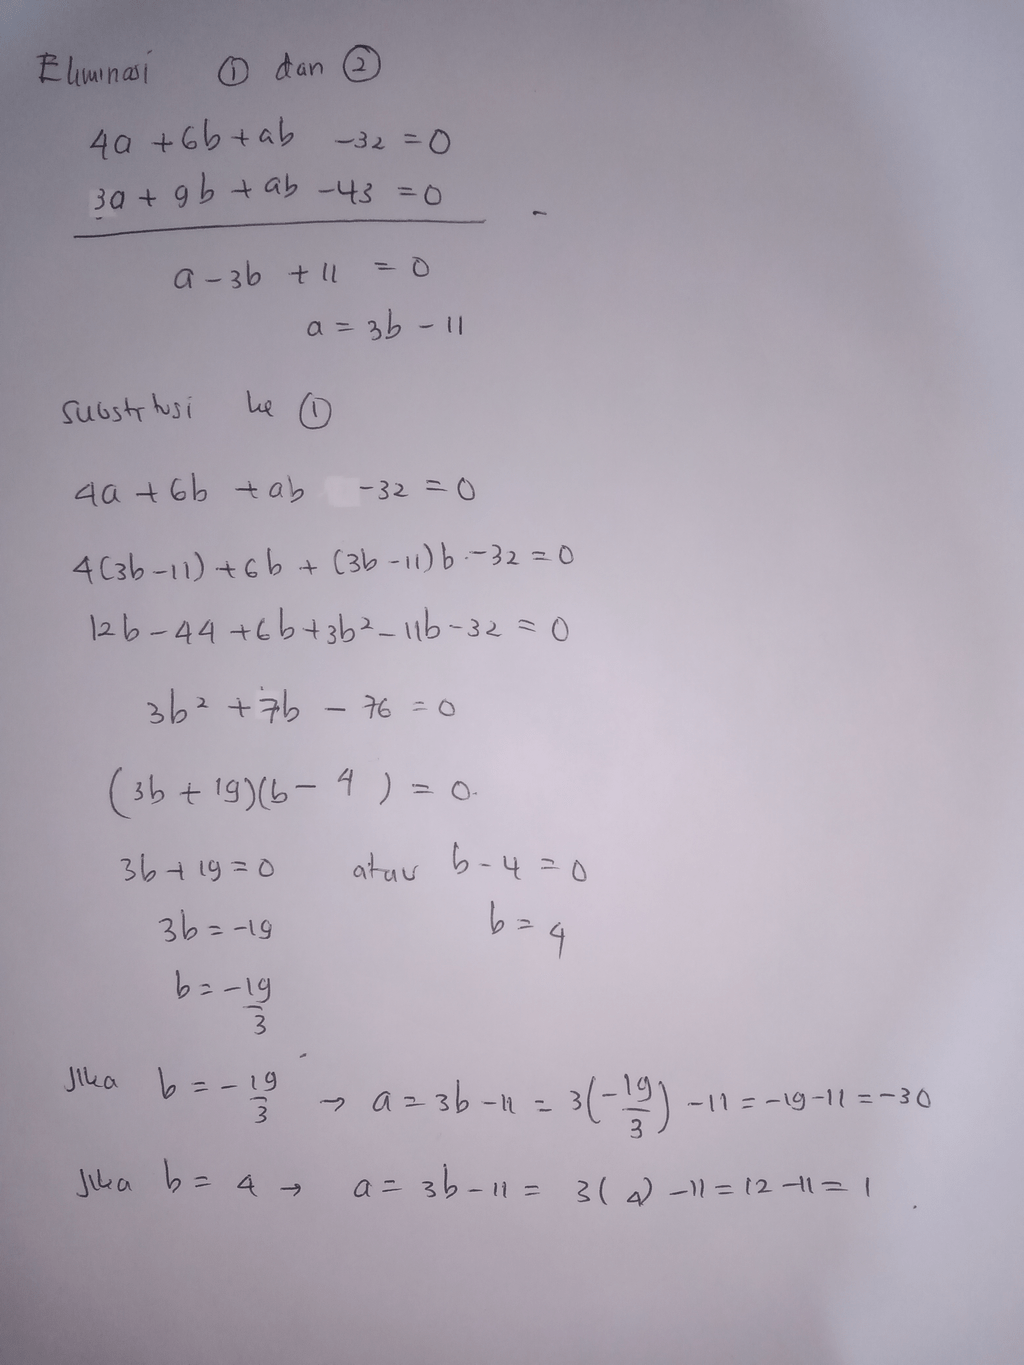 Eliminasi ① dan ②
4a + 6b + ab - 32 = 0
3a + 9b + ab - 43 = 0 -
a - 3b + 11 = 0
a = 3b - 11
Substitusi ke ①
4a + 6b + ab - 32 = 0
4(3b - 11) + 6b + (3b - 11)b - 32 = 0
12b - 44 + 6b + 3b² - 11b - 32 = 0
3b² + 7b - 76 = 0
(3b + 19)(b - 4) = 0.
3b + 19 = 0 atau b - 4 = 0
3b = -19 b = 4
b = -19/3
Jika b = -19/3 → a = 3b - 11 = 3(-19/3) - 11 = -19 - 11 = -30
Jika b = 4 → a = 3b - 11 = 3(4) - 11 = 12 - 11 = 1